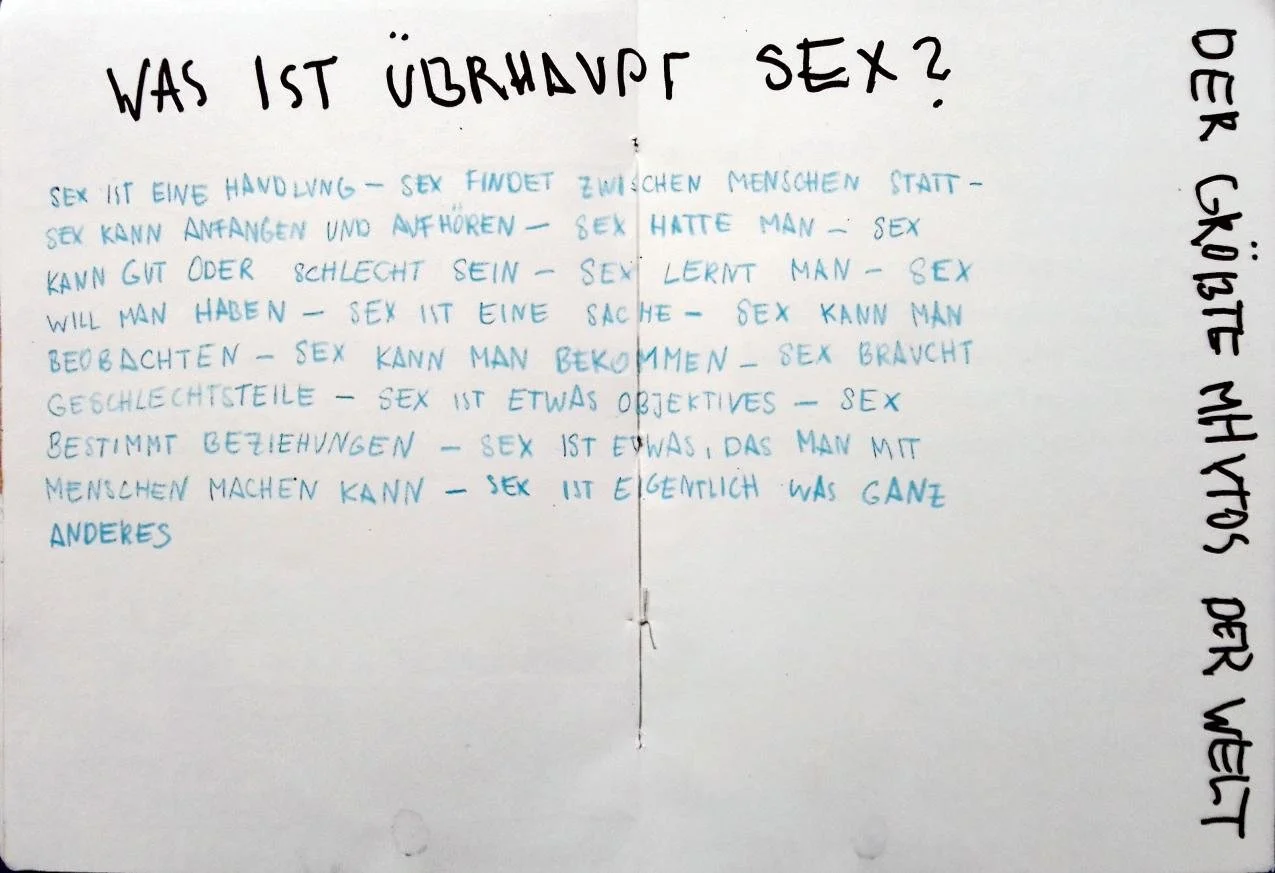 WAS IST ÜBRHAUPT SEX?
SEX IST EINE HANDLUNG – SEX FINDET ZWISCHEN MENSCHEN STATT –
SEX KANN ANFANGEN UND AUFHÖREN – SEX HATTE MAN – SEX
KANN GUT ODER SCHLECHT SEIN – SEX LERNT MAN – SEX
WILL MAN HABEN – SEX IST EINE SACHE – SEX KANN MAN
BEOBACHTEN – SEX KANN MAN BEKOMMEN – SEX BRAUCHT
GESCHLECHTSTEILE – SEX IST ETWAS OBJEKTIVES – SEX
BESTIMMT BEZIEHUNGEN – SEX IST ETWAS, DAS MAN MIT
MENSCHEN MACHEN KANN – SEX IST EIGENTLICH WAS GANZ
ANDERES
DER GRÖßTE MHYTOS DER WELT